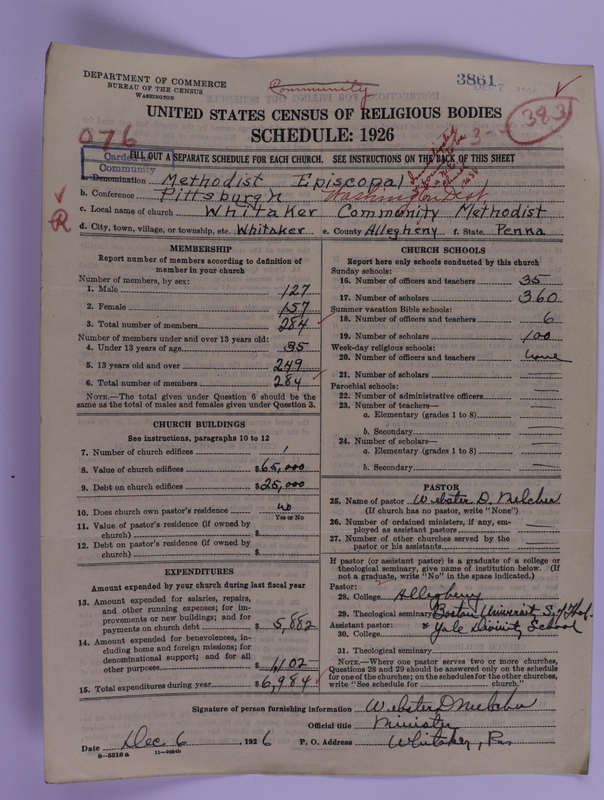 DEPARTMENT OF COMMERCE
BUREAU OF THE CENSUS
WASHINGTON
Community
3861
UNITED STATES CENSUS OF RELIGIOUS BODIES
SCHEDULE: 1926
383
076
Carded as
Community
FILL OUT A SEPARATE SCHEDULE FOR EACH CHURCH. SEE INSTRUCTIONS ON THE BACK OF THIS SHEET
a. Denomination Methodist Episcopal
b. Conference Pittsburgh
c. Local name of church Whitaker Community Methodist
R
d. City, town, village, or township, etc. Whitaker e. County Allegheny f. State Penna
MEMBERSHIP
Report number of members according to definition of
member in your church
Number of members, by sex:
1. Male 127
2. Female 157
3. Total number of members 284
Number of members under and over 13 years old:
4. Under 13 years of age 35
5. 13 years old and over 249
6. Total number of members 284
NOTE.—The total given under Question 6 should be the
same as the total of males and females given under Question 3.
CHURCH BUILDINGS
See instructions, paragraphs 10 to 12
7. Number of church edifices 1
8. Value of church edifices $65,000
9. Debt on church edifices $25,000
10. Does church own pastor's residence? no
Yes or No
11. Value of pastor's residence (if owned by
church) $
12. Debt on pastor's residence (if owned by
church) $
EXPENDITURES
Amount expended by your church during last fiscal year
13. Amount expended for salaries, repairs,
and other running expenses; for im-
provements or new buildings; and for
payments on church debt $5,882
14. Amount expended for benevolences, in-
cluding home and foreign missions; for
denominational support; and for all
other purposes $1102
15. Total expenditures during year $6,984
CHURCH SCHOOLS
Report here only schools conducted by this church
Sunday schools:
16. Number of officers and teachers 35
17. Number of scholars 360
Summer vacation Bible schools:
18. Number of officers and teachers 6
19. Number of scholars 100
Week-day religious schools:
20. Number of officers and teachers none
21. Number of scholars
Parochial schools:
22. Number of administrative officers
23. Number of teachers—
a. Elementary (grades 1 to 8)
b. Secondary
24. Number of scholars—
a. Elementary (grades 1 to 8)
b. Secondary
PASTOR
25. Name of pastor Webster D. Melcher
(If church has no pastor, write "None")
26. Number of ordained ministers, if any, em-
ployed as assistant pastors
27. Number of other churches served by the
pastor or his assistants
If pastor (or assistant pastor) is a graduate of a college or
theological seminary, give name of institution below. (If
not a graduate, write "No" in the space indicated.)
Pastor:
28. College Allegheny
29. Theological seminary Boston University S. of Theol.
Assistant pastor: & Yale Divinity School
30. College
31. Theological seminary
NOTE.—Where one pastor serves two or more churches,
Questions 28 and 29 should be answered only on the schedule
for one of the churches; on the schedules for the other churches,
write "See schedule for church."
Signature of person furnishing information Webster D Melcher
Official title Minister
Date Dec. 6, 1926 P. O. Address Whitaker, Pa.
8—5518a 11—4084b